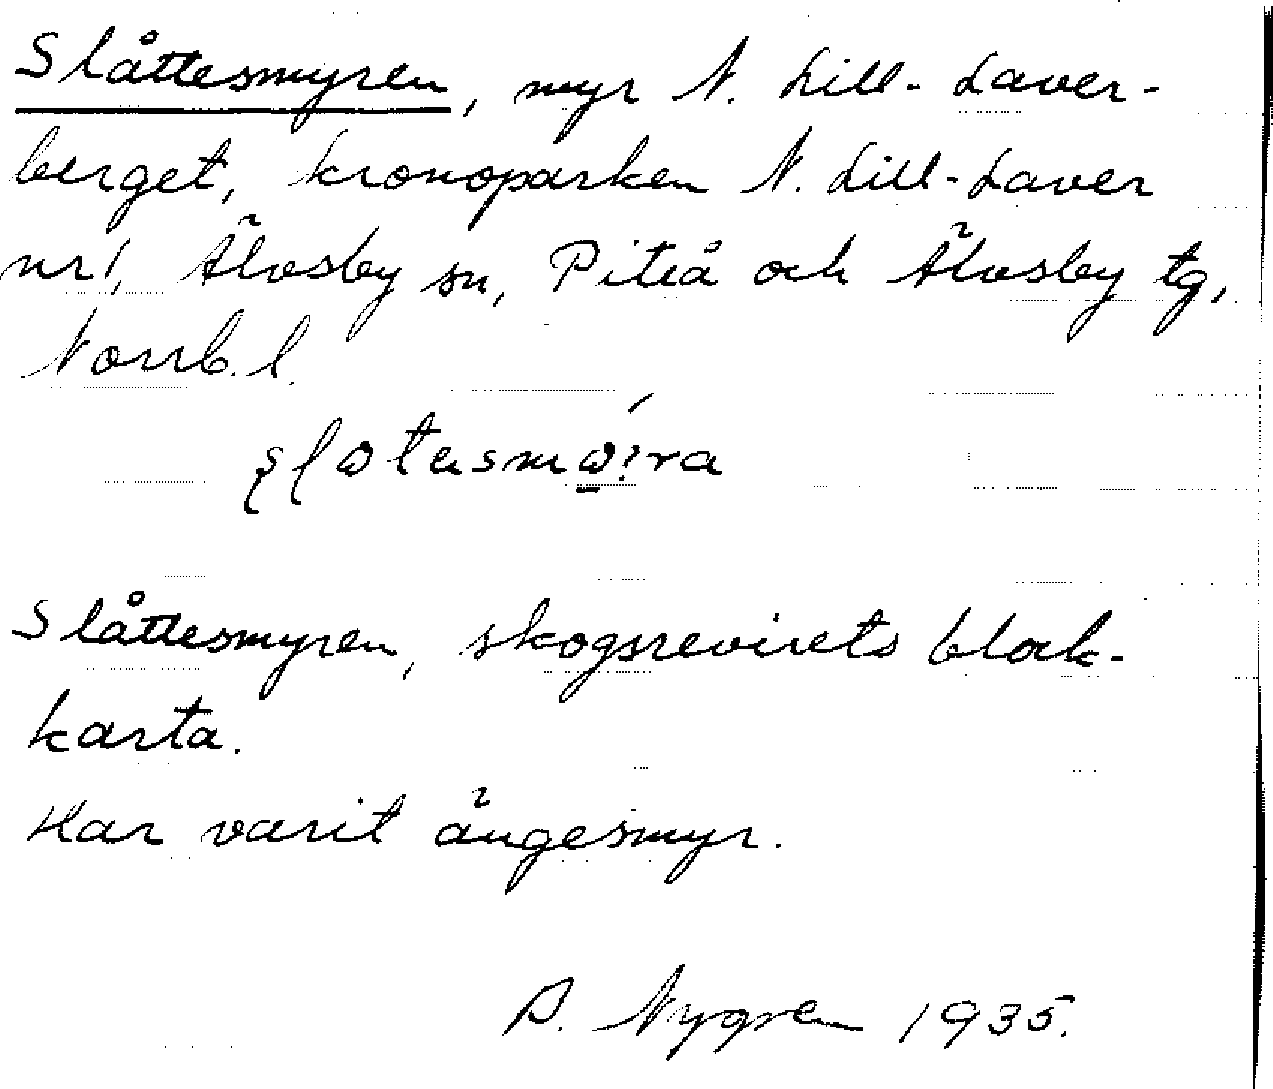 Slåttesmyren, myr N. Lill-Laver-
berget, kronoparken N. Lill-Laver
nr 1, Älvsby sn, Piteå och Älvsby tg,
Norrb. l.
Slåttesmyren, skogsrevirets block-
karta.
Har varit ängesmyr.
Nygren 1935.